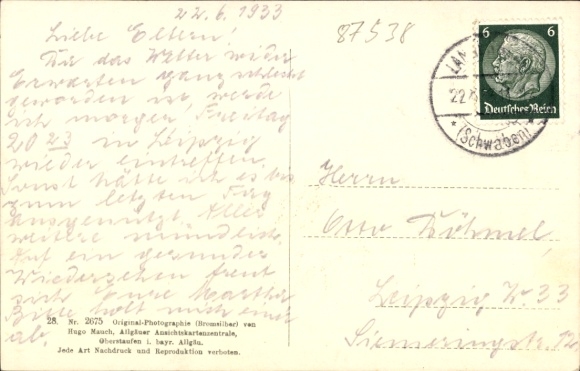 22.6.1933
87538
Liebe Eltern!
Da das Wetter wider
Erwarten ganz schlecht
geworden ist, werde
ich morgen, Freitag
20 23 in Leipzig
wieder eintreffen,
sonst hätte ich es bis
zum letzten Tag
ausgenützt. Alles
weitere mündlich.
Auf ein gesundes
Wiedersehen freut
sich Eure Martha
Bitte holt mich
ab.
6 6
Deutsches Reich
22.
(Schwaben)
Herrn
Otto Böhmel,
Leipzig W. 33
28. Nr. 2675 Original-Photographie (Bromsilber) von
Hugo Mauch, Allgäuer Ansichtskartenzentrale,
Oberstaufen i. bayr. Allgäu.
Jede Art Nachdruck und Reproduktion verboten.